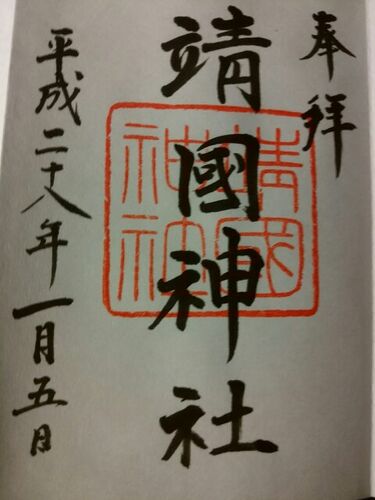 奉拝
靖國神社
靖國
神社
平成二十八年一月五日